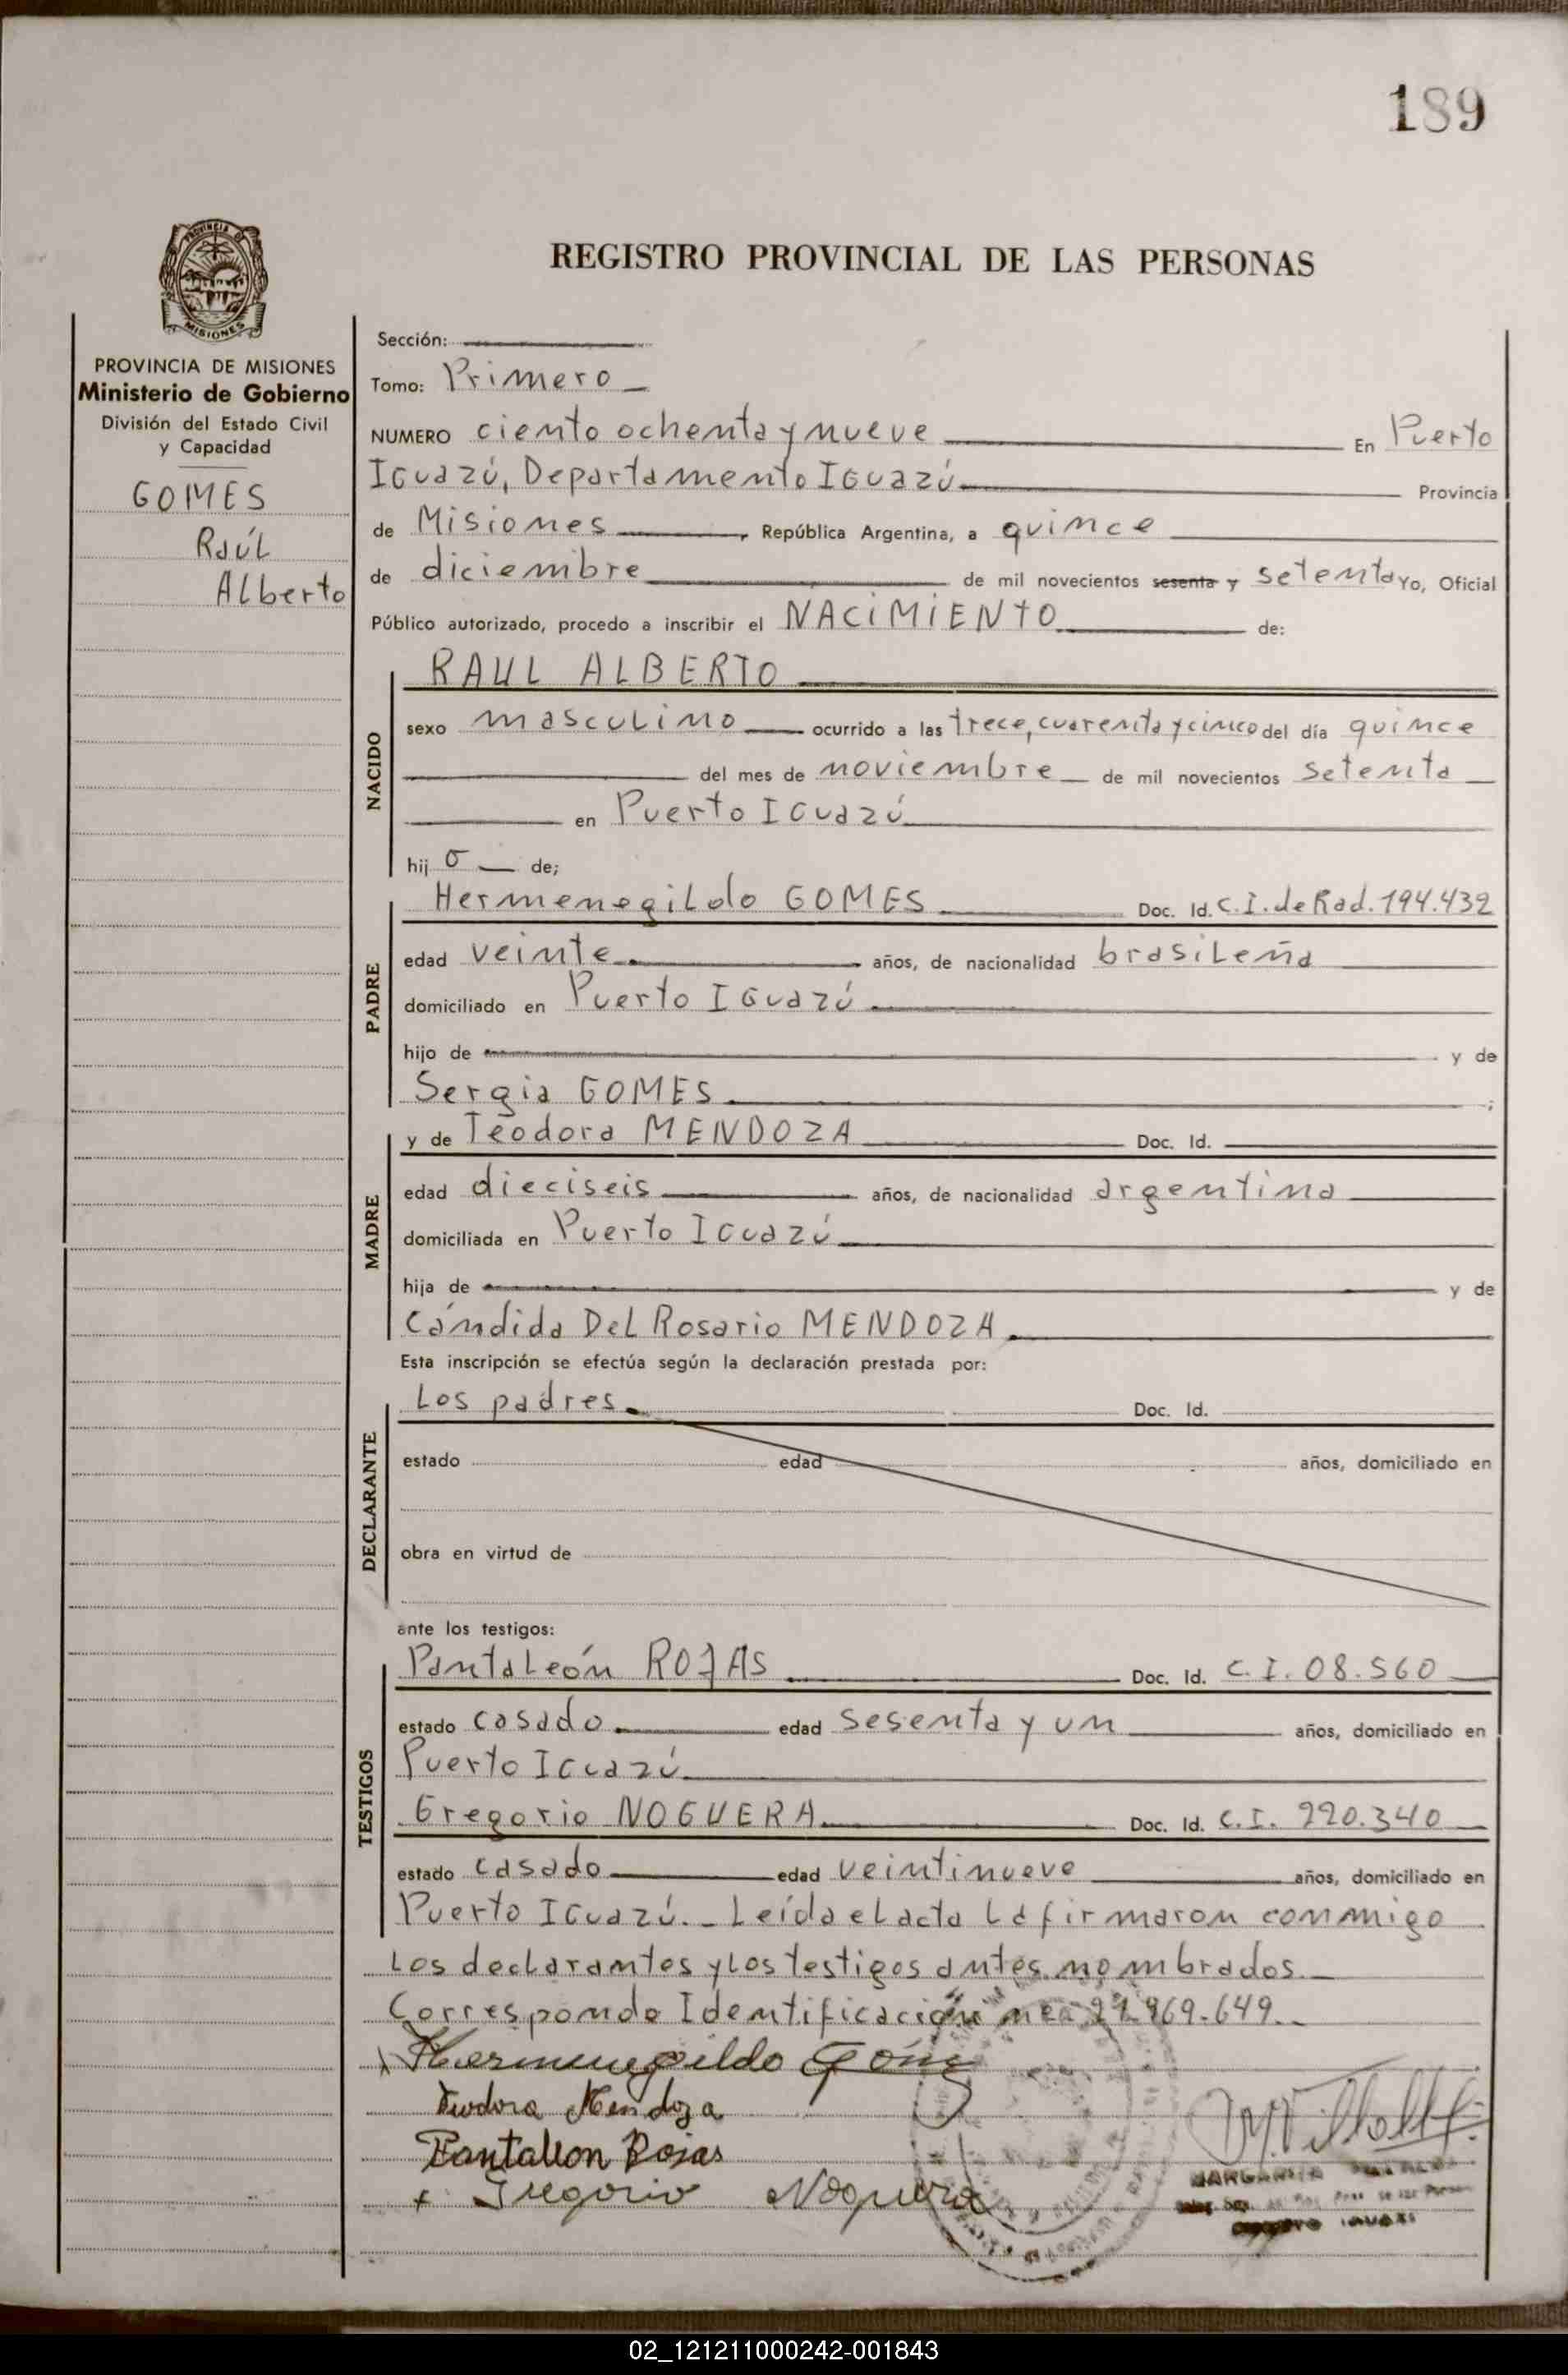 189
REGISTRO PROVINCIAL DE LAS PERSONAS
PROVINCIA DE
MISIONES
PROVINCIA DE MISIONES
Ministerio de Gobierno
División del Estado Civil
y Capacidad
GOMES
Raúl
Alberto
Sección:
Tomo: Primero
NUMERO ciento ochenta y nueve En Puerto
Iguazú, Departamento Iguazú Provincia
de Misiones, República Argentina, a quince
de diciembre de mil novecientos sesenta y setenta Yo, Oficial
Público autorizado, procedo a inscribir el NACIMIENTO de:
NACIDO
RAUL ALBERTO
sexo masculino ocurrido a las trece, cuarenta y cinco del día quince
del mes de noviembre de mil novecientos setenta
en Puerto Iguazú
hij o de;
PADRE
Hermenegildo GOMES Doc. Id. C.I. de Rad. 194.432
edad veinte años, de nacionalidad brasileña
domiciliado en Puerto Iguazú
hijo de y de
Sergia GOMES ;
MADRE
y de Teodora MENDOZA Doc. Id.
edad dieciseis años, de nacionalidad argentina
domiciliada en Puerto Iguazú
hija de y de
Cándida Del Rosario MENDOZA
Esta inscripción se efectúa según la declaración prestada por:
DECLARANTE
Los padres. Doc. Id.
estado edad años, domiciliado en
obra en virtud de
ante los testigos:
TESTIGOS
Pantaleón ROJAS Doc. Id. C.I. 08.560
estado casado edad sesenta y un años, domiciliado en
Puerto Iguazú
Gregorio NOGUERA Doc. Id. C.I. 220.340
estado casado edad veintinueve años, domiciliado en
Puerto Iguazú. Leída el acta la firmaron conmigo
los declarantes y los testigos antes nombrados.
Corresponde Identificación 21.969.649.
Hermenegildo
Teodora Mendoza
Pantaleon Rojas
x Gregorio Noguera
MARGARITA
IGUAZU
02_121211000242-001843